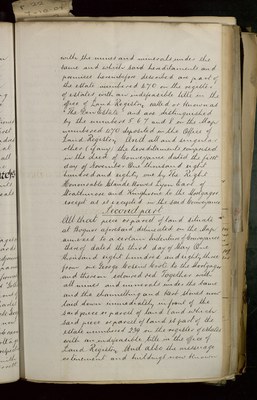 with the mines and minerals under the
same and which said hereditaments and
premises hereinbefore described are part of
the estate numbered 270 on the register
of estates with an indefeasible title in the
Office of Land Registry called or known as
"The Estate" and are distinguished
by the numbers 5 6 7 and 8 on the Map
numbered 270 deposited in the Office of
Land Registry And all and singular
other (if any) the hereditaments comprised
in the deed of Conveyance dated the first
day of One thousand eight
hundred and eighty one by the Right
Honorable Claude Bowes Lyon Earl of
Strathmore and Kinghorne to the Mortgagor
except as is excepted in the said Conveyance
Second part
All that piece or parcel of land situate
at aforesaid delineated on the Map
annexed to a certain Indenture of Conveyance
thereof dated the third day of May One
thousand eight hundred and eighty three
from one George to the Mortgagor
and thereon colored red Together with
all mines and minerals under the same
and the channelling and kerb stones now
laid down immediately in front of the
said piece or parcel of land and which
said piece or parcel of land is part of the
estate numbered 239 on the register of estates
with an indefeasible title in the office of
Land Registry And also the messuage
tenement and buildings now known